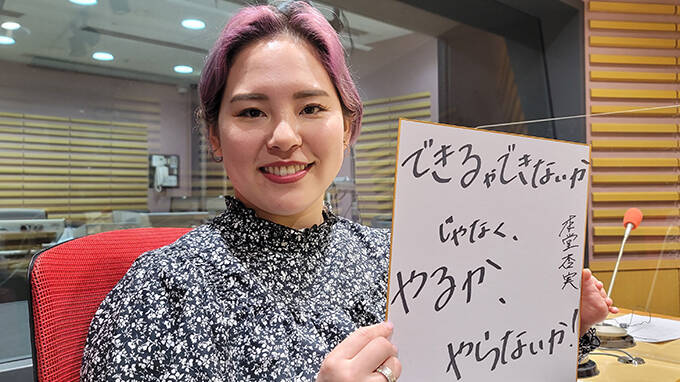 できるかできないか
じゃなく、
やるか、
やらないか!
本堂杏実